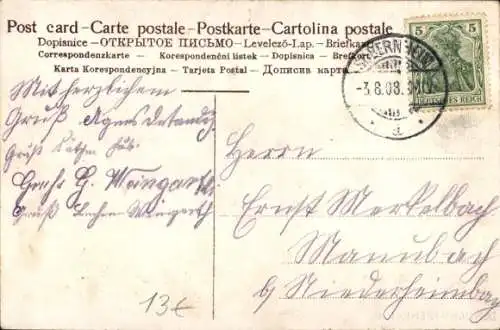 Post card – Carte postale – Postkarte – Cartolina postale
Dopisnice – ОТКРЫТОЕ ПИСЬМО – Levelező-Lap. – Briefkar
Correspondenzkarte – Korespondenční lístek – Dopisnica – Brefkort
Karta Korespondencyjna – Tarjeta Postal – Дописна карта
5 5
DEUTSCHES REICH
-3.8.08.
a
Mit herzlichem
Gruß Agnes
Gruß
G. Weingarth
Gruß Weingarth
Herrn
Ernst Merkelbach
Manubach
b/ Niederheimbach
13€